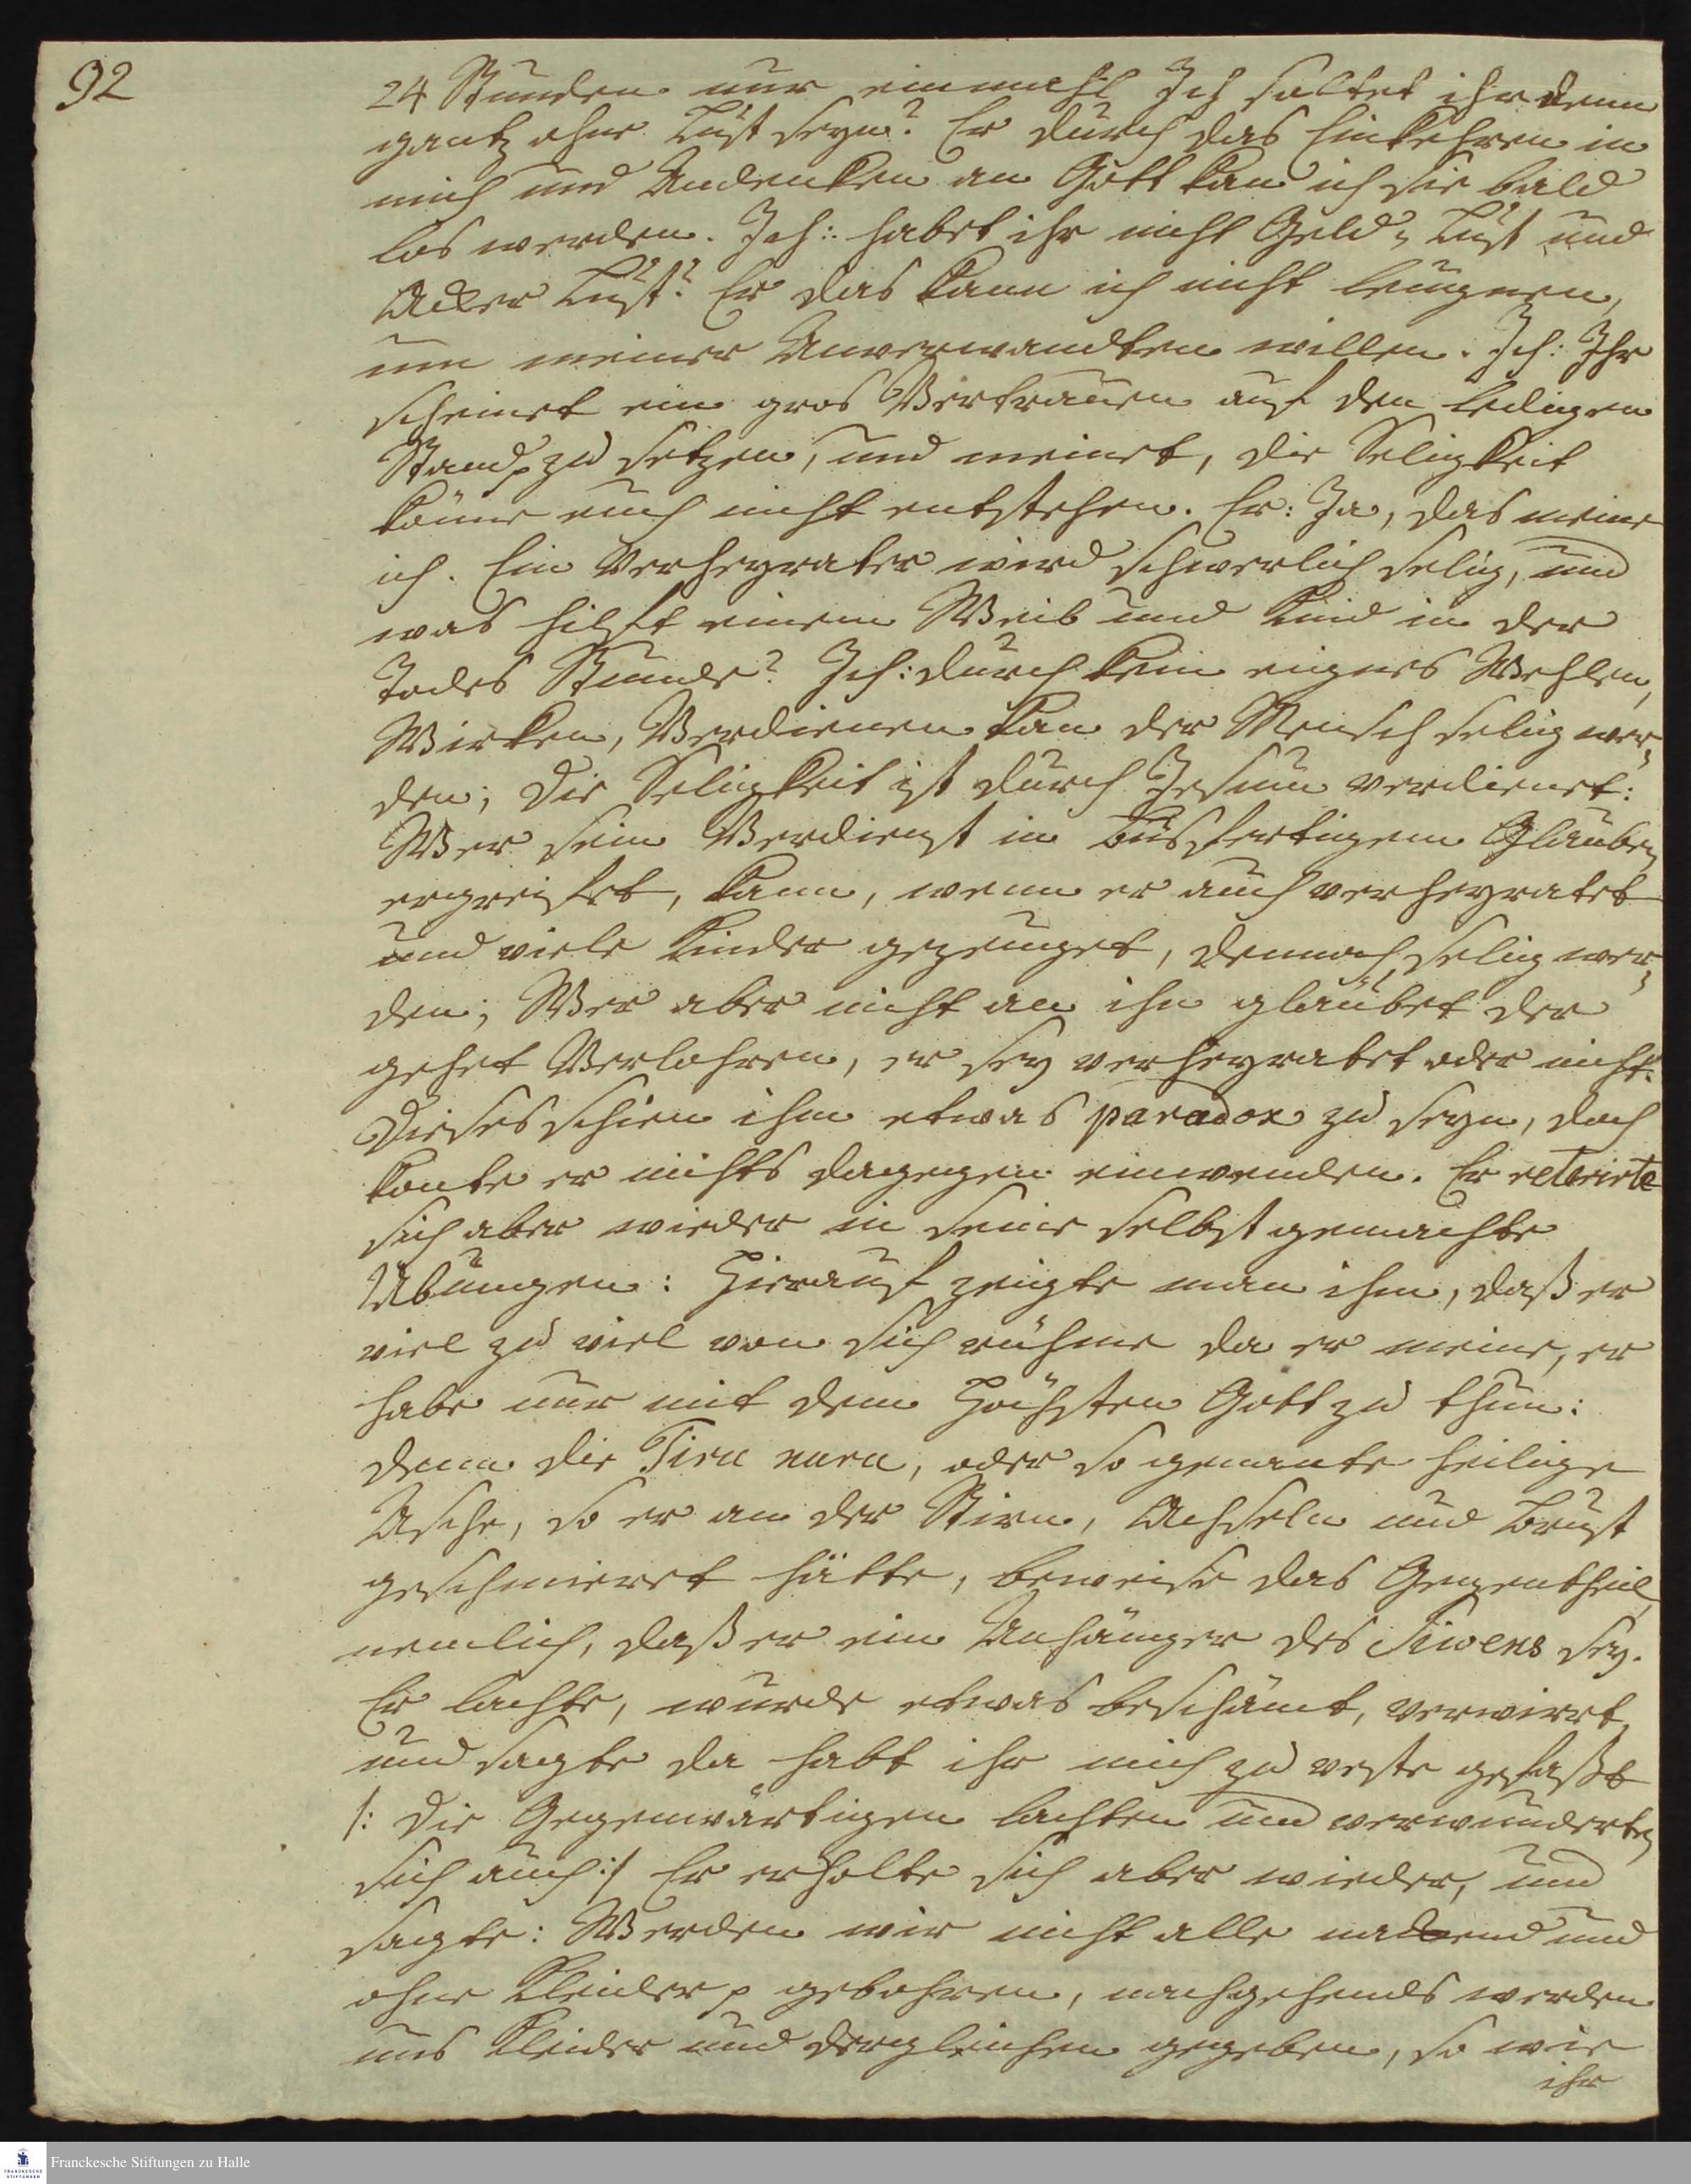 92
24 Stunden nur einmahl Ich soltet ihr denn
gantz ohne Lust seyn? Er durch das Einkehren in
mich und Andencken an Gott kan ich sie bald
los werden. Ich: habet ihr nicht Geld- Lust und
Acker Lust? Er das kann ich nicht leugnen,
um meiner Anverwandten willen. Ich: Ihr
scheinet ein gros Vertrauen auf den ledigen
Stand p zu setzen, und meinet, die Seligkeit
könne euch nicht entstehen. Er: Ja, das meine
ich. Ein Verheyrateter wird schwerlich selig, und
was hilft einem Weib und Kind in der
Todes Stunde? Ich: durch kein eigenes Wehlen,
Wircken, Verdienen kan der Mensch selig wer-
den; Die Seligkeit ist durch Jesum verdienet:
Wer sein Verdienst in busfertigem Glauben
ergreiffet, kann, wenn er auch verheyratet
und viele Kinder gezeuget, dennoch selig wer-
den; Wer aber nicht an ihn gläubet der
gehet Verlohren, er sey verheyratet oder nicht.
Dieses schien ihm etwas paradox zu seyn, doch
konte er nichts dagegen einwenden. Er reterirte
sich aber wieder in seine selbst gemachte
Übungen: Hierauf zeigte man ihm, daß er
viel zu viel von sich rühme da er meine, er
habe nur mit dem Höchsten Gott zu thun:
denn die Tiru nuru, oder so genante heilige
Asche, so er an der Stirn, Achseln und Brust
geschmieret hätte, beweise das Gegentheil,
nemlich, daß er ein Anhänger des Siwens sey.
Er lachte, wurde etwas beschämt, verwirrt,
und sagte da habt ihr mich zu veste gefaßt
/: Die Gegenwärtigen lachten und verwunderten
sich auch :/ Er erholte sich aber wieder, und
sagte: Werden wir nicht alle nackend und
ohne Kleider p gebohren, nachgehends werden
uns Kleider und dergleichen gegeben, so wie
ihr
FRANCKESCHE STIFTUNGEN
Franckesche Stiftungen zu Halle